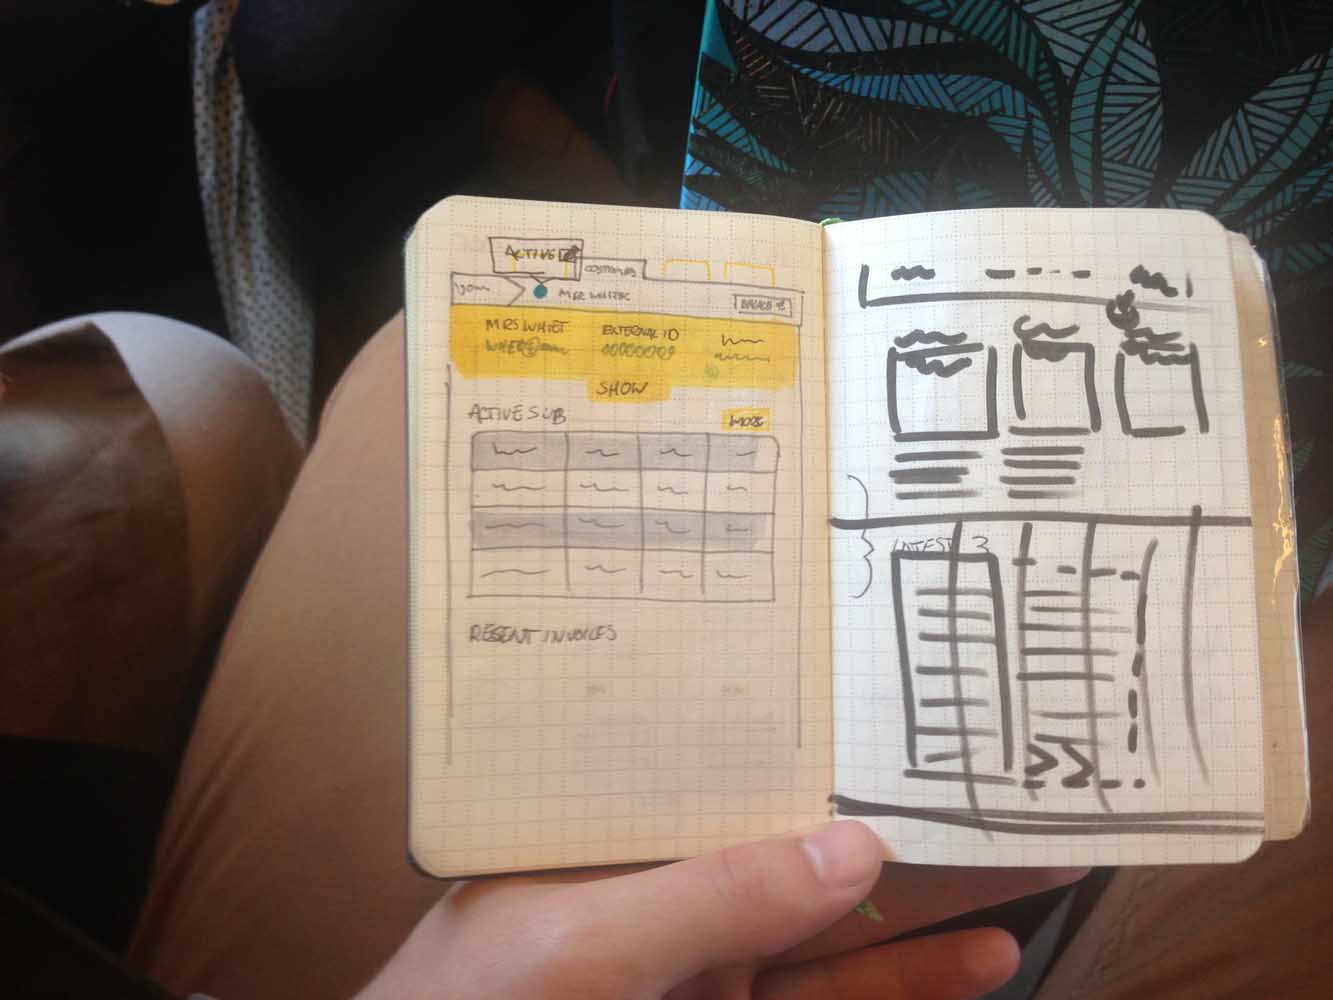 ACTIVE
CUSTOMERS
MRS WHITE
MRS WHIET EXTERNAL ID
WHER@ 00000009
SHOW
ACTIVE SUB MORE
RESENT INVOICES
LATEST 3